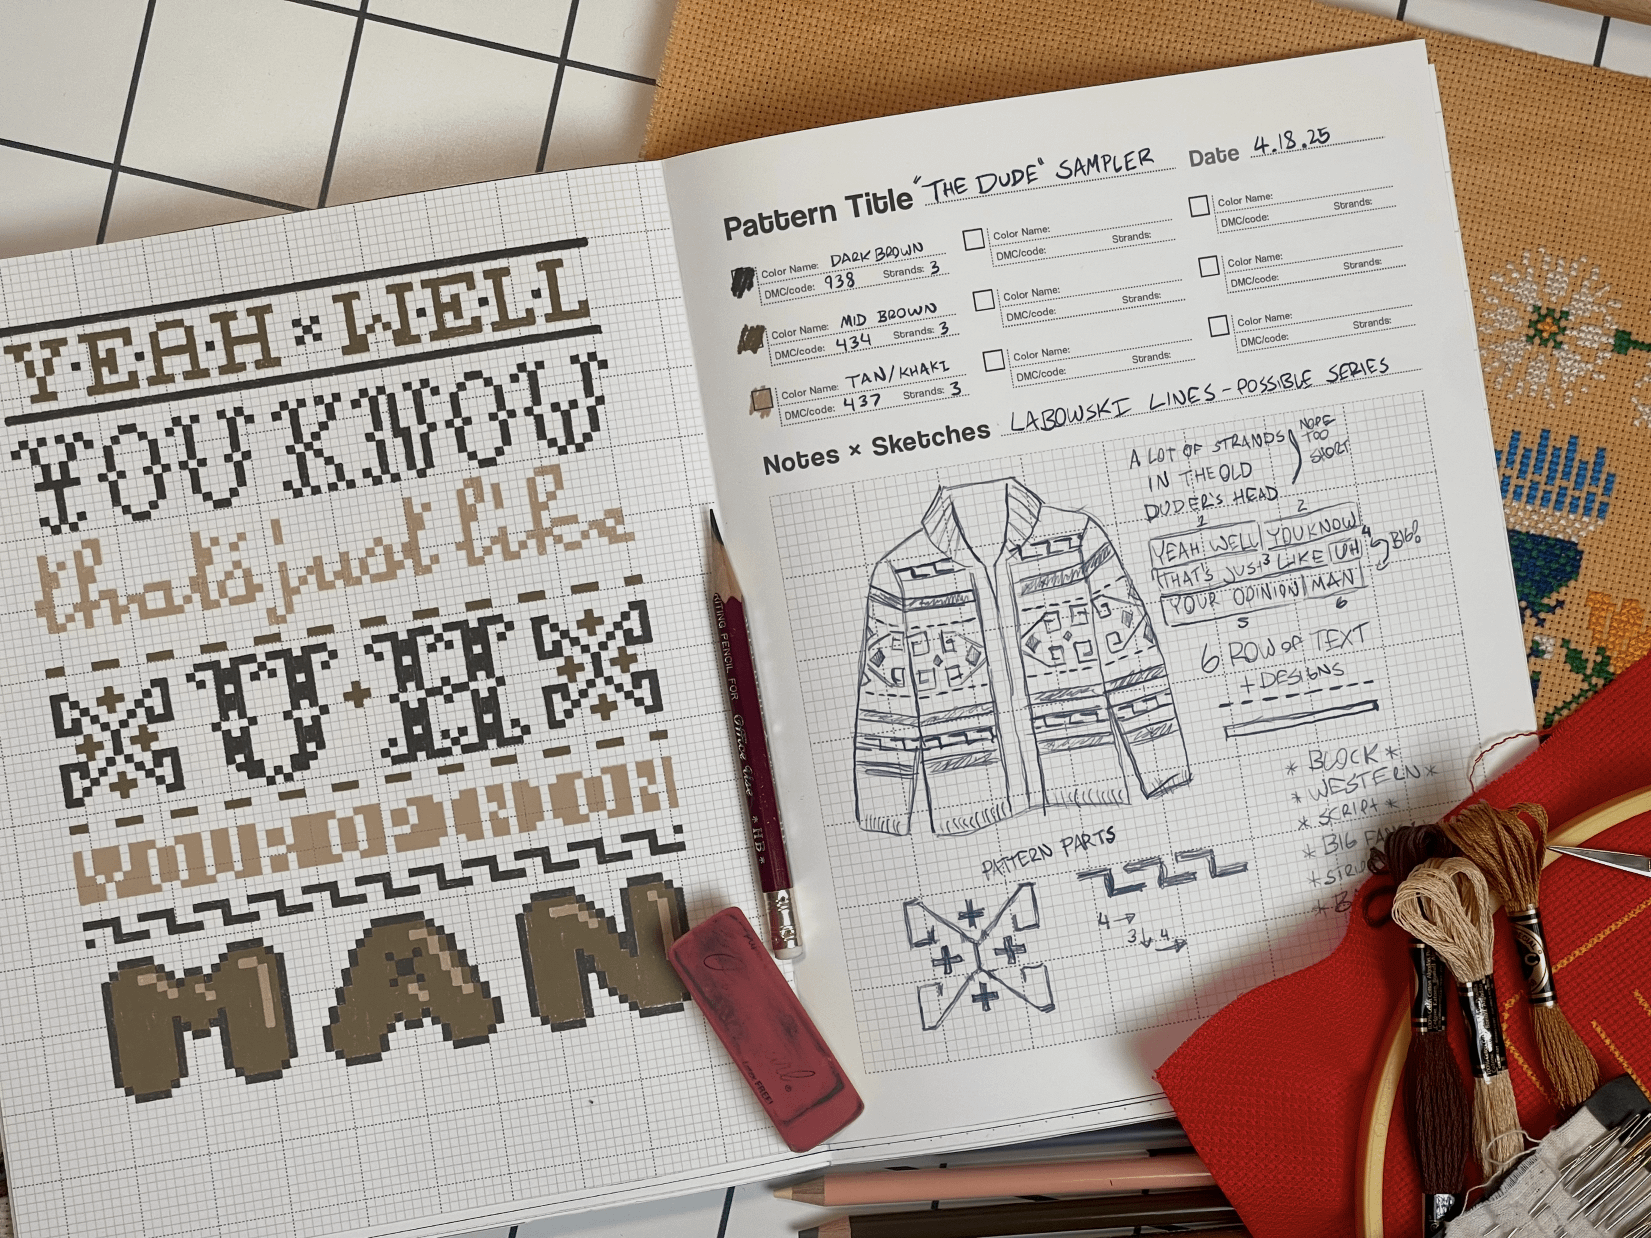 YEAH × WELL
YOU KNOW
that's just like
UH
YOUR OPINION
MAN
Pattern Title "THE DUDE" SAMPLER
Date 4.18.25
Color Name: DARK BROWN
DMC/code: 938 Strands: 3
Color Name:
DMC/code: Strands:
Color Name:
DMC/code: Strands:
Color Name: MID BROWN
DMC/code: 434 Strands: 3
Color Name:
DMC/code: Strands:
Color Name:
DMC/code: Strands:
Color Name: TAN/KHAKI
DMC/code: 437 Strands: 3
Color Name:
DMC/code: Strands:
Color Name:
DMC/code: Strands:
Notes × Sketches LABOWSKI LINES - POSSIBLE SERIES
A LOT OF STRANDS
IN THE OLD
DUDER'S HEAD
NOPE
TOO
SHORT
1 2
YEAH WELL YOU KNOW
THAT'S JUST 3 LIKE UH 4 BIG!
YOUR OPINION MAN
5 6
6 ROW OF TEXT
+ DESIGNS
* BLOCK *
* WESTERN *
* SCRIPT *
* BIG
PATTERN PARTS
4 →
3 ↓ 4 →
PENCIL FOR
* HB *